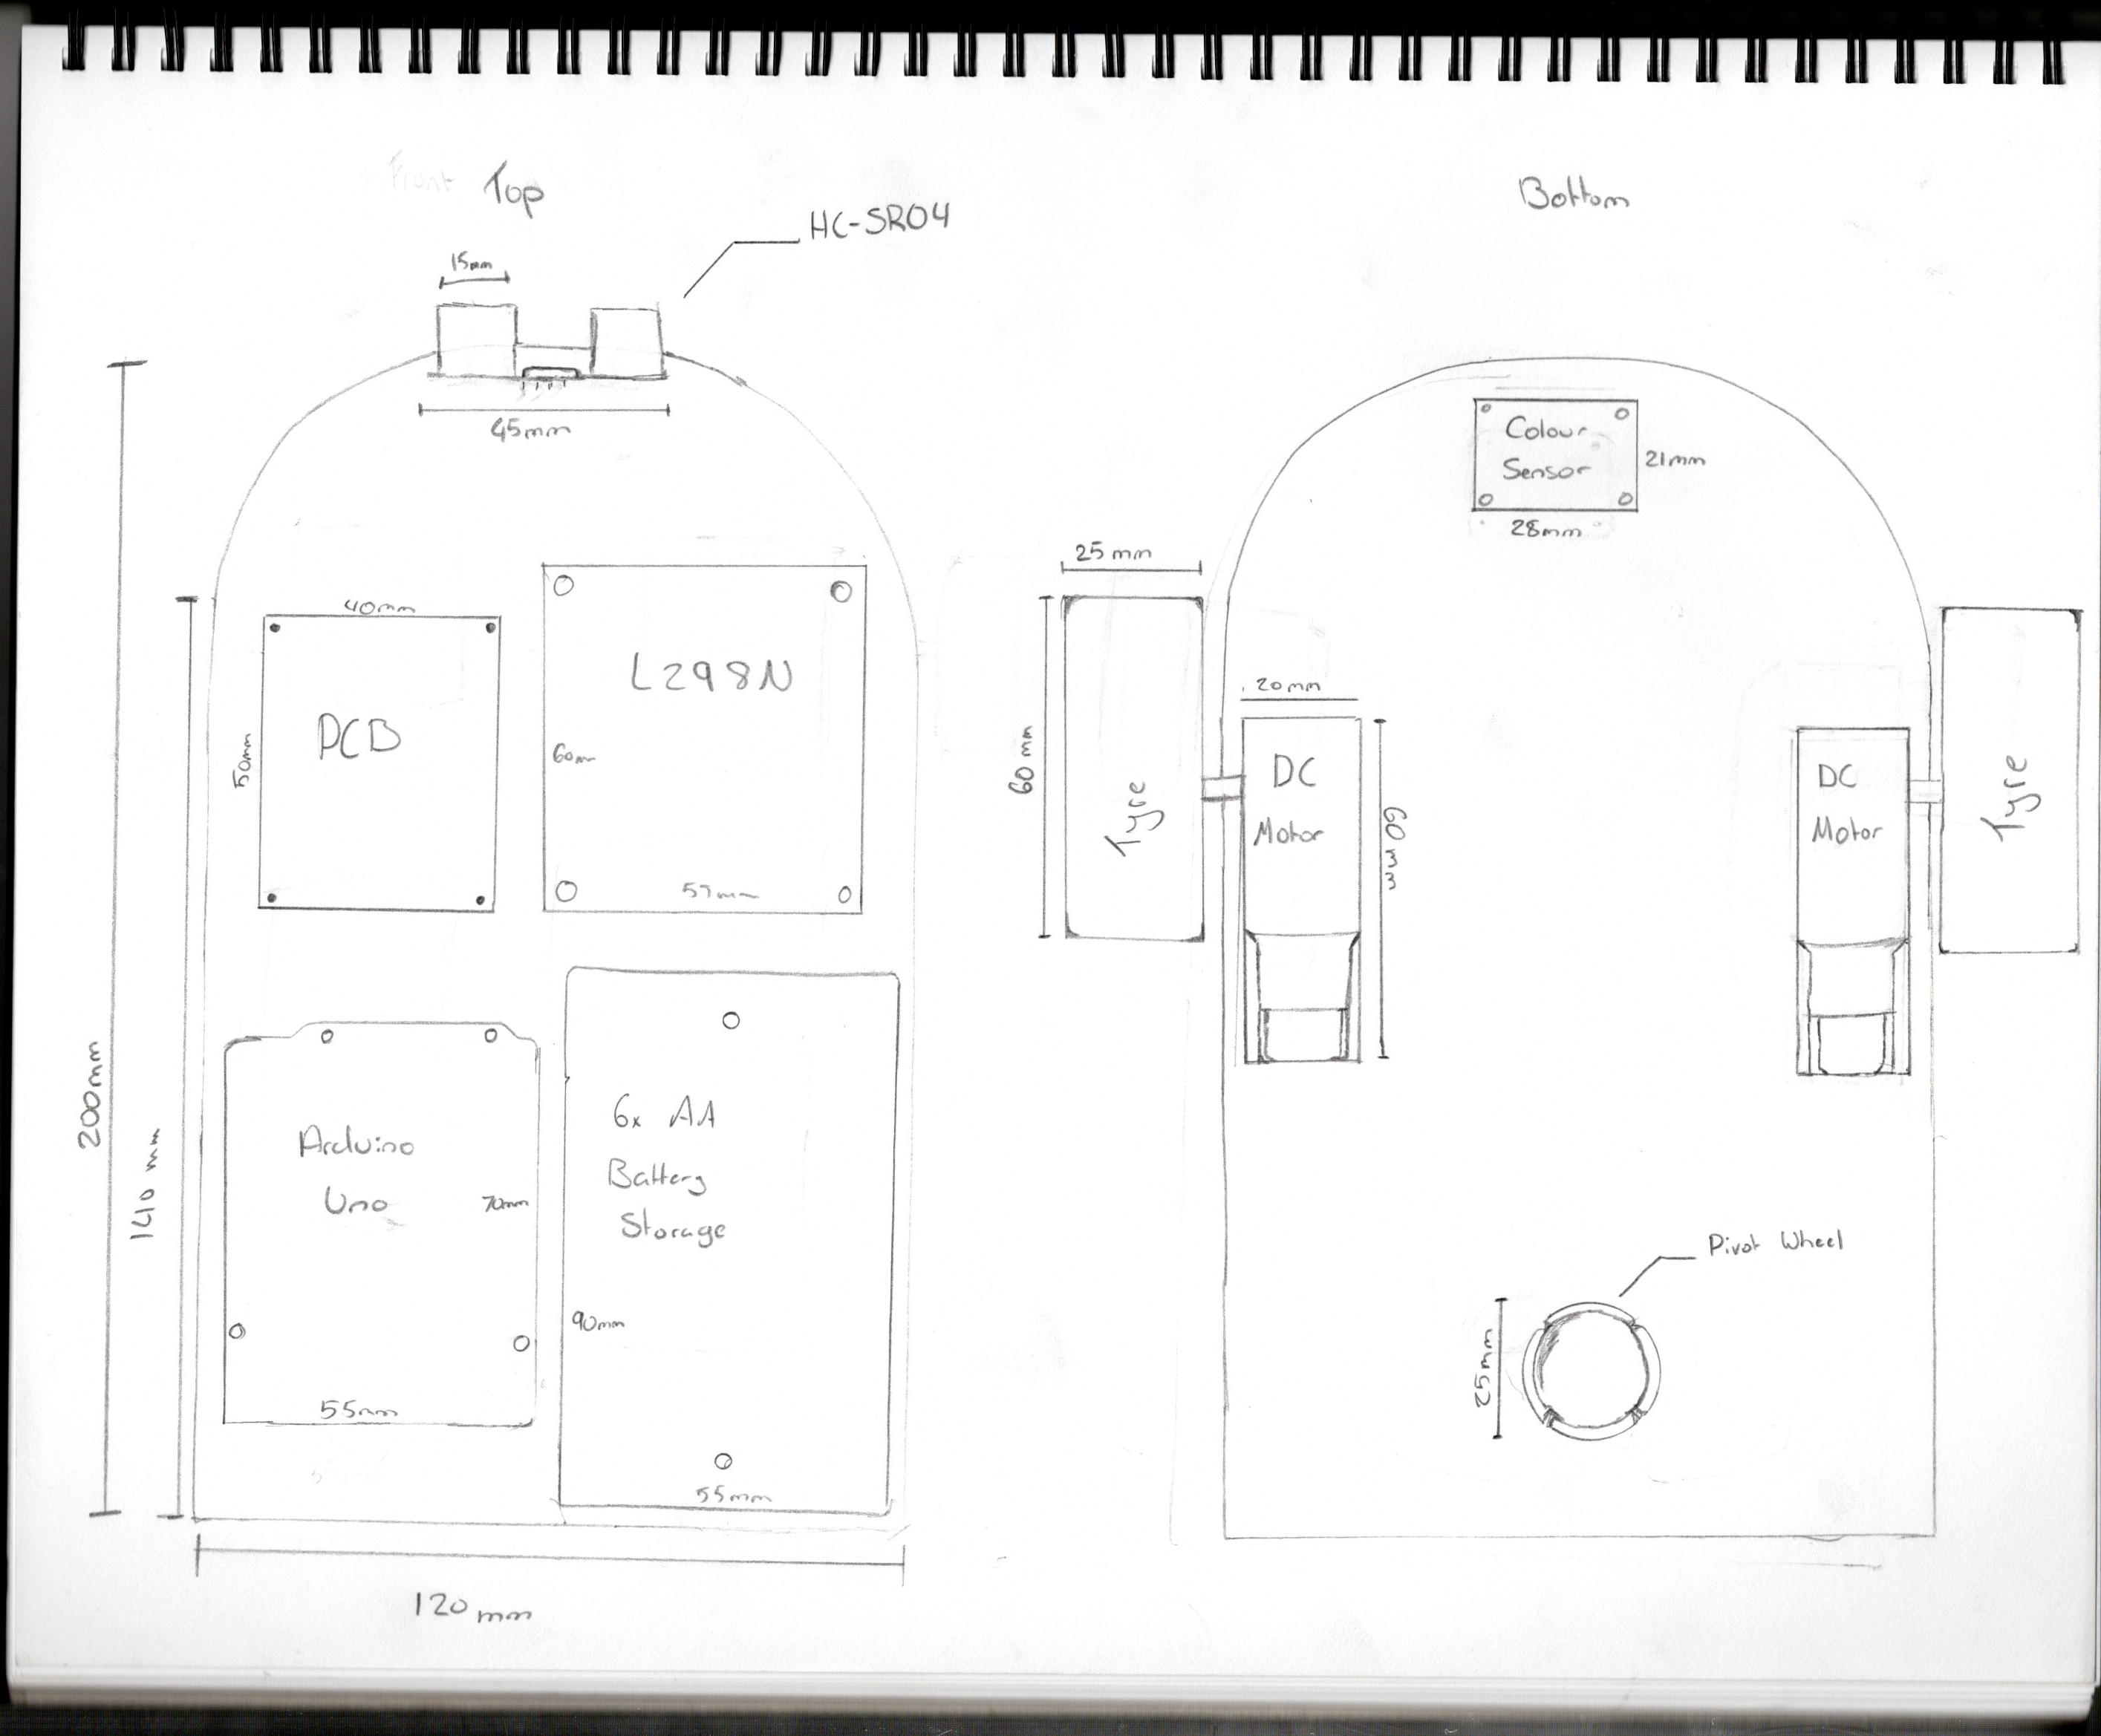 Front Top
HC-SR04
15mm
45mm
200mm
140mm
40mm
50mm
PCB
L298N
60m
57mm
Arduino
Uno
70mm
55mm
6x AA
Battery
Storage
90mm
55mm
120mm
Bottom
Colour
Sensor
21mm
28mm
25mm
60mm
Tyre
20mm
DC
Motor
60mm
DC
Motor
Tyre
Pivot Wheel
25mm